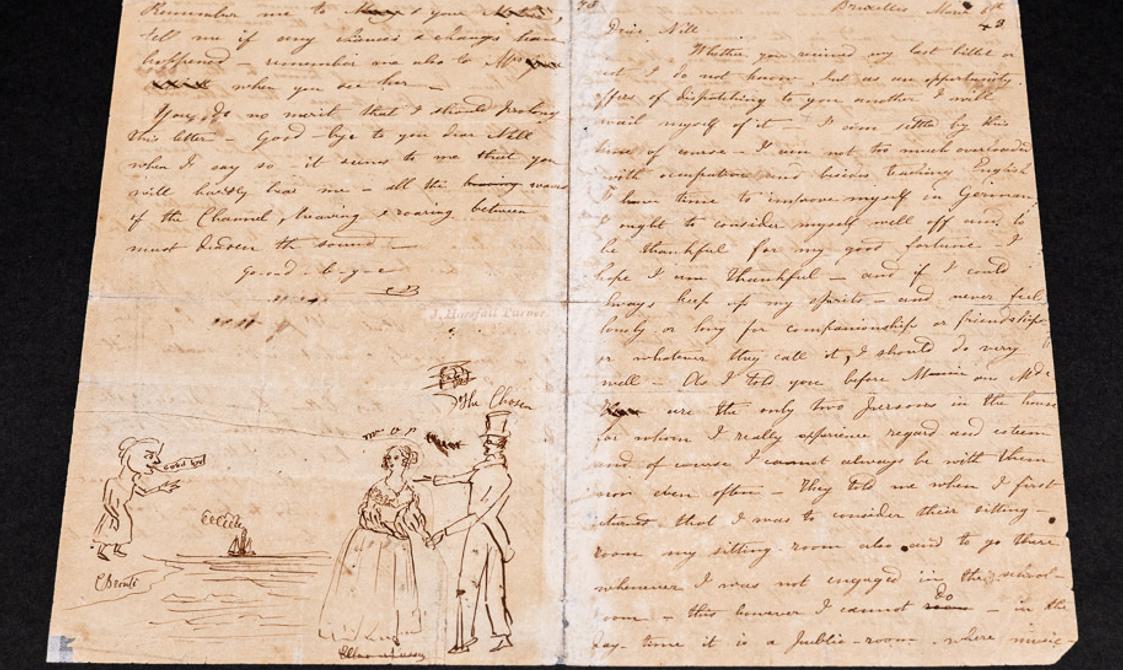 Remember me to & your
tell me if any chances & changes have
happened – remember me also to Mrs
when you see her –
no merit that I should prolong
this letter – Good-bye to you dear Nell
when I say so – it seems to me that you
will hardly hear me – all the waves
of the Channel, heaving & roaring between
must deaden the sound –
Go-o-d – b-y-e
CB
J. Horsfall Turner
The Chosen
Good bye
C Bronté
43
Bruxelles March 6th
43
Dear Nell
Whether you received my last billet or
not I do not know, but as an opportunity
offers of dispatching to you another I will
avail myself of it – I am settled by this
time of course – I am not too much overloaded
with occupation and besides teaching English
I have time to improve myself in German
I ought to consider myself well off and to
be thankful for my good fortune – I
hope I am thankful – and if I could
always keep up my spirits – and never feel
lonely or long for companionship or friendship
or whatever they call it, I should do very
well – As I told you before and Mde
are the only two persons in the house
for whom I really experience regard and esteem
and of course I cannot always be with them
nor even often – They told me when I first
returned that I was to consider their sitting-
room my sitting-room also and to go there
whenever I was not engaged in the school-
room – this however I cannot do – in the
day-time it is a public-room – where music-